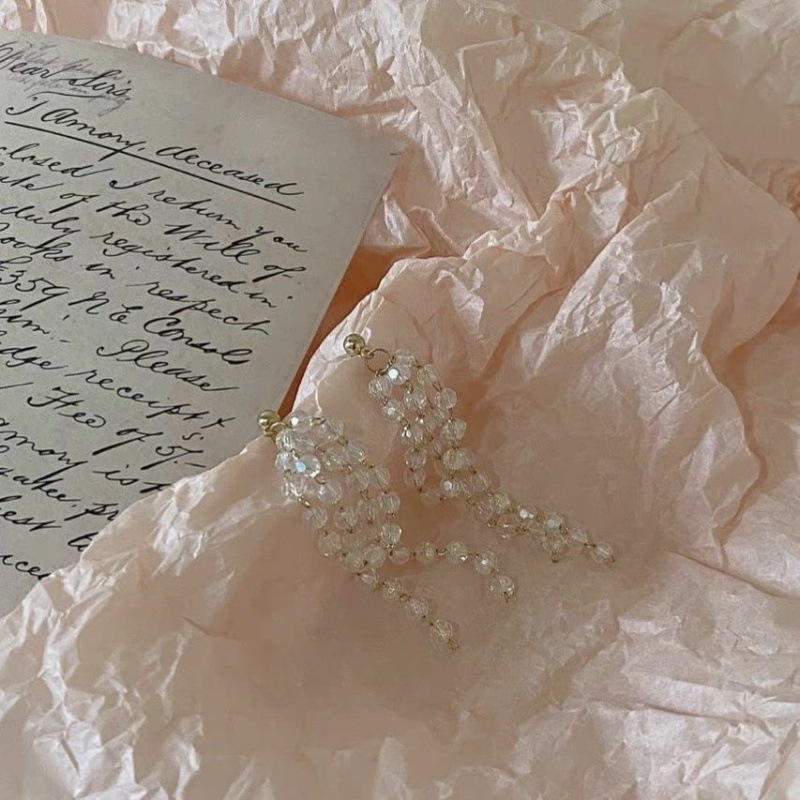 Dear Sirs
J Amory, deceased
closed I return you
ate of the Will of
duly registered in
books in respect
£359 N E Consols
him:- Please
edge receipt &
Fee of 5/-
amory is
take
est to